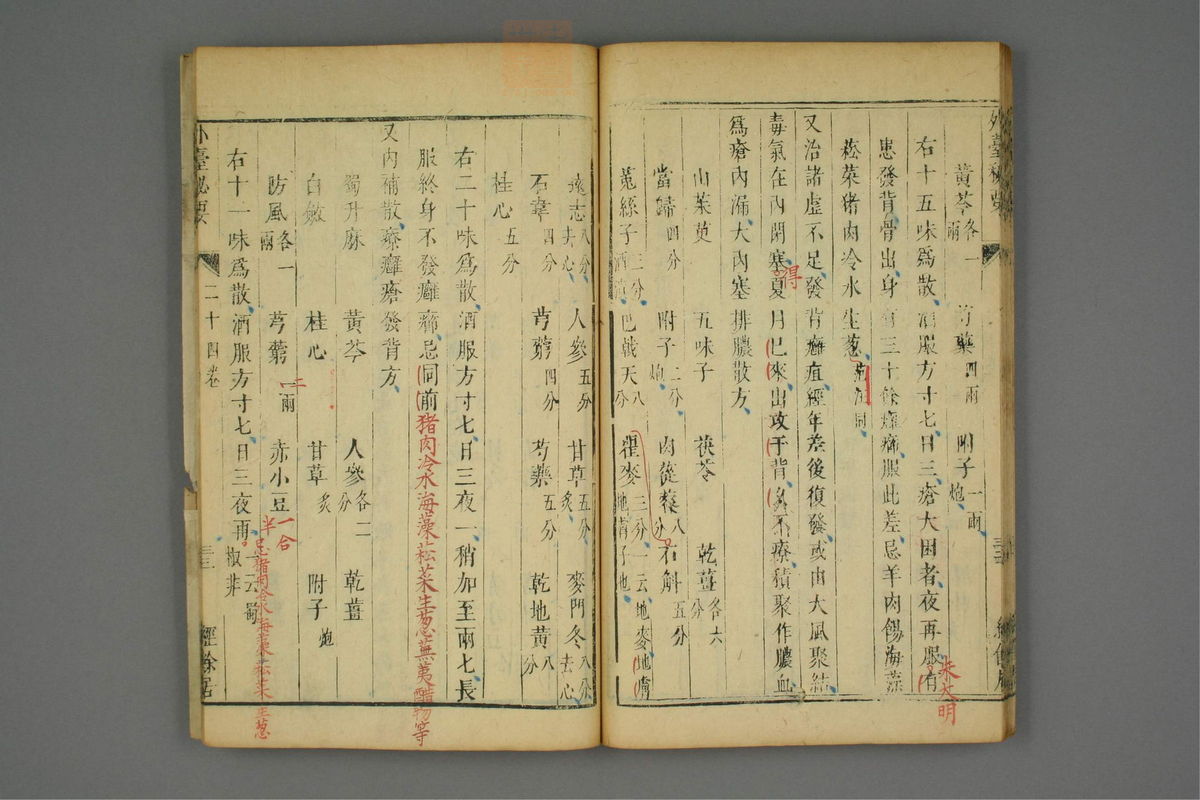 外臺秘要
黃芩各一兩 芍藥四兩 附子一兩炮
右十五味爲散酒服方寸七日三瘡大困者夜再服有
患發背骨出身有三十餘癰癤服此差忌羊肉餳海藻
菘菜猪肉冷水生葱
又治諸虛不足發背癰疽經年差後復發或由大風聚結
毒氣在內閉塞夏月已來出攻于背久不療積聚作膿血
爲瘡內漏大內塞排膿散方
得
朱大明
山茱萸 五味子 茯苓 乾薑各六分
當歸四分 附子二分炮 肉蓯蓉八分 石斛五分
菟絲子三分酒 巴戟天八分 瞿麥三分一云地麥地膚子也 地膚
遠志八分去心 人參五分 甘草五分炙 麥門冬八分去心
石韋四分 芎藭四分 芍藥五分 乾地黃八分
桂心五分
右二十味爲散酒服方寸七日三夜一稍加至兩七長
服終身不發癰癤忌同前猪肉冷水海藻菘菜生葱蕪荑醋物等
又內補散療癰瘡發背方
蜀升麻 黃芩 人參各二分 乾薑
白斂 桂心 甘草炙 附子炮
防風各一兩 芎藭一兩 赤小豆一合半
二
忌猪肉冷水海藻菘菜生葱
右十一味爲散酒服方寸七日三夜再一云蜀椒非
外臺秘要 二十四卷 經餘居